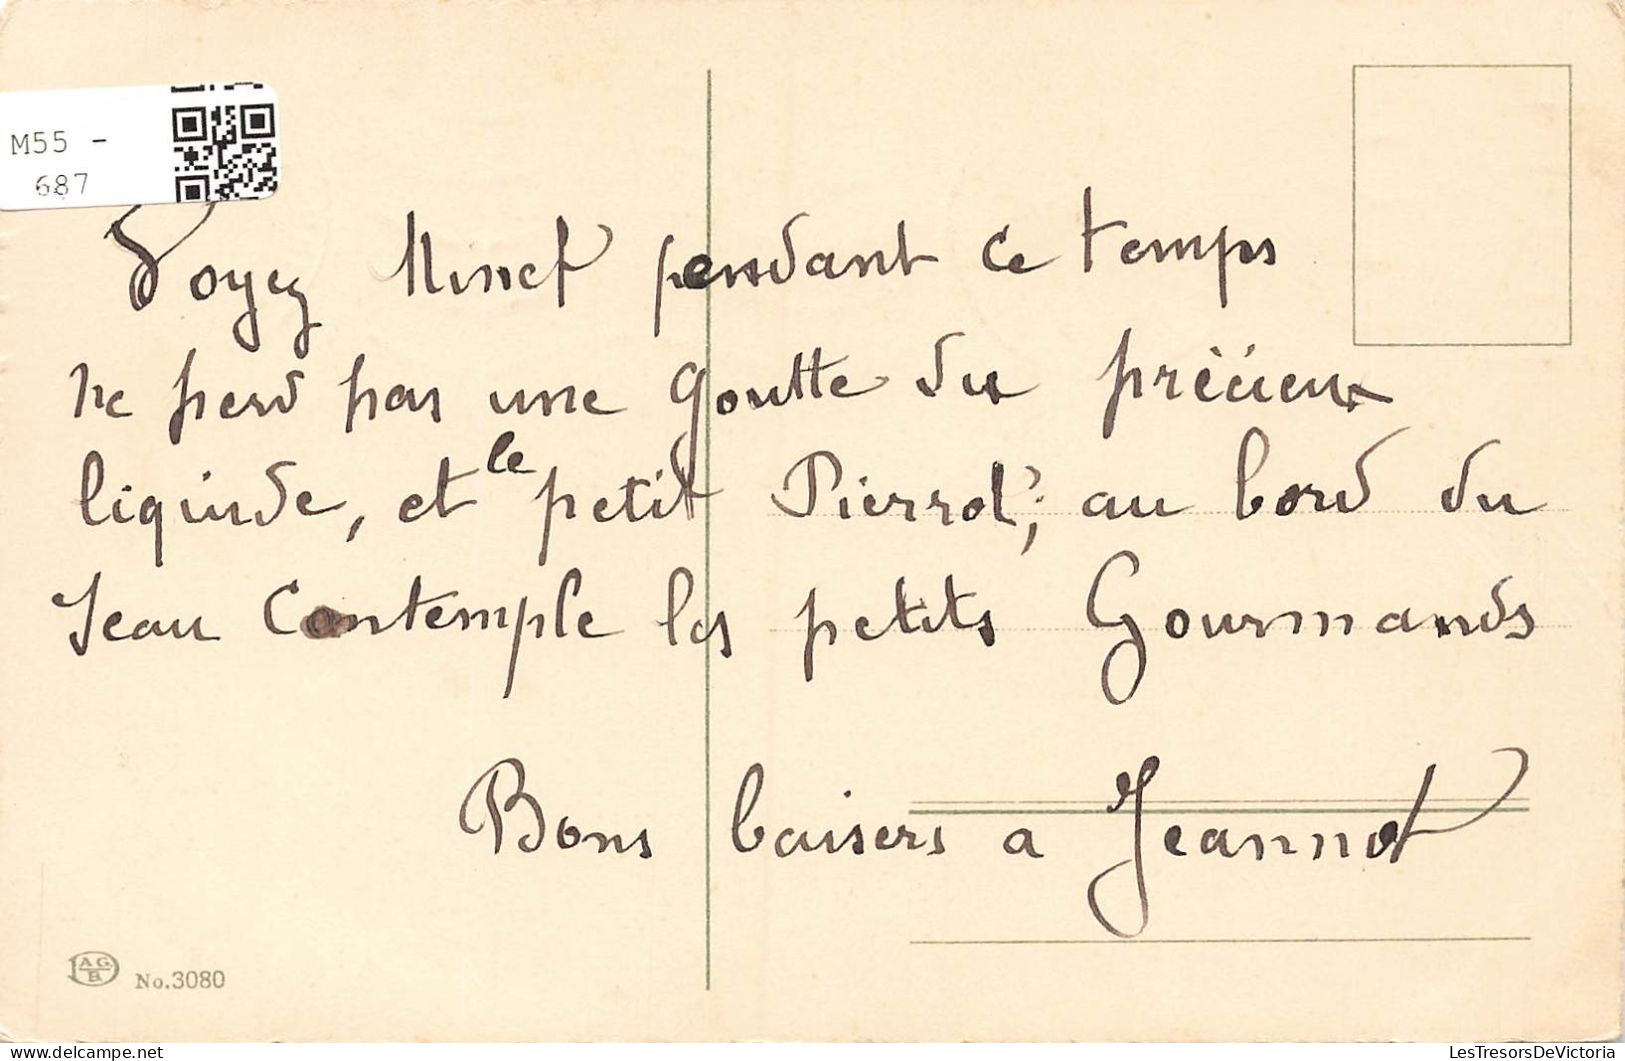 M55 -
687
Voyez Minet pendant ce temps
ne perd pas une goutte du précieux
liquide, et le petit Pierrot, au bord du
seau contemple les petits Gourmands
Bons baisers a Jeannot
AG
B
No.3080
LesTresorsDeVictoria